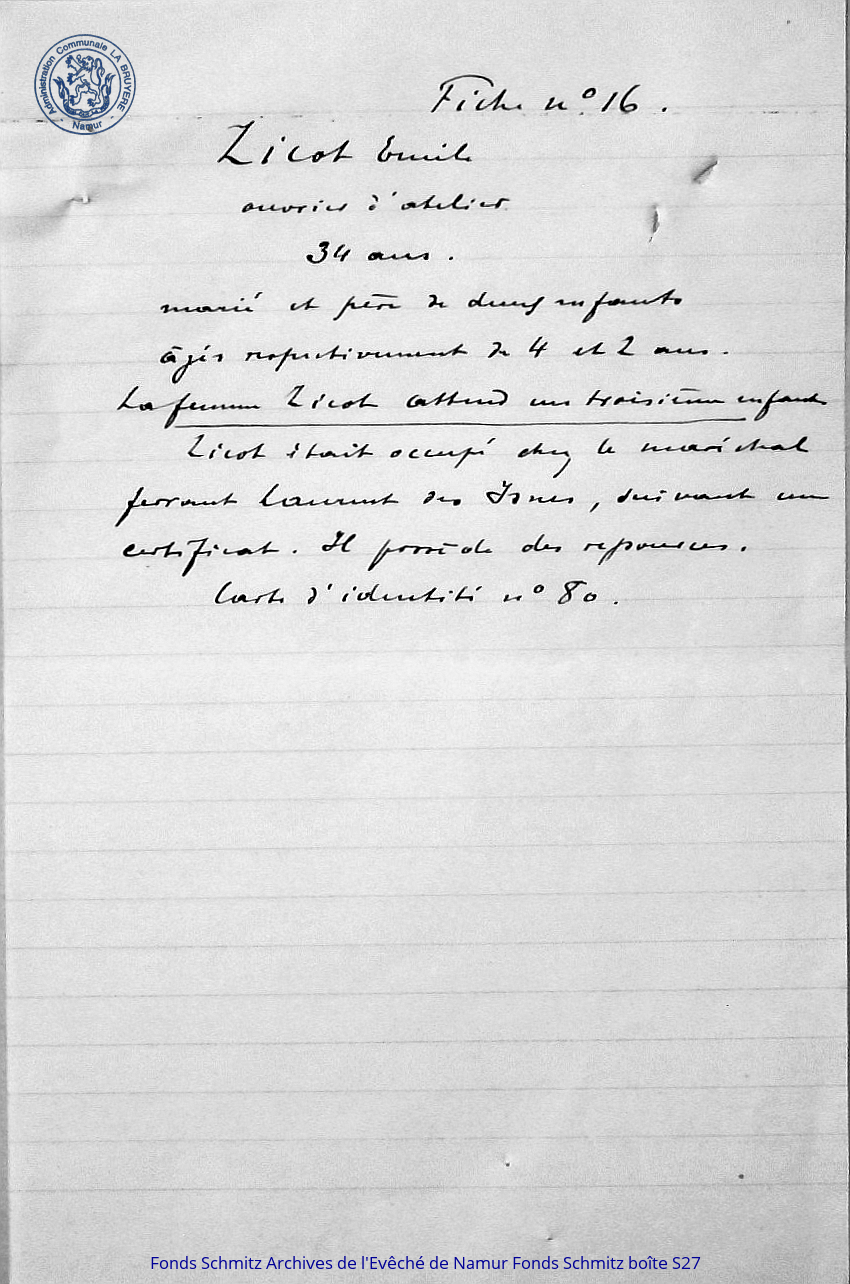 Administration Communale LA BRUYERE
Namur
Fiche n° 16.
Zicot Emile
ouvrier d'atelier
34 ans.
marié et père de deux enfants
âgés respectivement de 4 et 2 ans.
La femme Zicot attend un troisième enfant
Zicot était occupé chez le maréchal
ferrant Laurent des Isnes, suivant un
certificat. Il possède des ressources.
Carte d'identité n° 80.
Fonds Schmitz Archives de l'Evêché de Namur Fonds Schmitz boîte S27